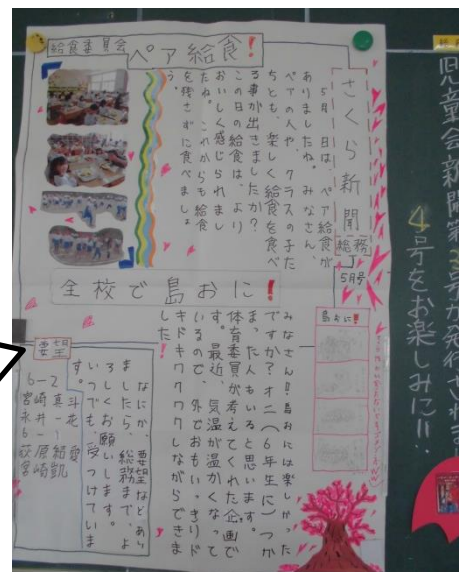 さくら新聞
総務
5月号
給食委員会
ペア給食!
5月 日は、ペア給食が
ありましたね。みなさん、
ペアの人や、クラスの子た
ちとも、楽しく給食を食べ
る事が出きましたか?
この日の給食は、より
おいしく感じられまし
たね。これからも給食
を残さずに食べましょ
う。
全校で島おに!
島おに!
みなさん!!島おには楽しかった
ですか?オニ(6年生に)つか
まった人もいると思います。
体育委員が考えてくれた企画で
す。最近、気温が温かくなって
いるので、外でおもいっきりド
キドキワクワクしながらできま
した!
要望
なにか、要望などあり
ましたら、総務まで、よ
ろしくお願いします。
いつでも、受つけていま
す。
6-2
宮崎真斗
永井一花
6-1
萩原結愛
宮崎凱
児童会新聞第3号が発行されま
4号をお楽しみに!!